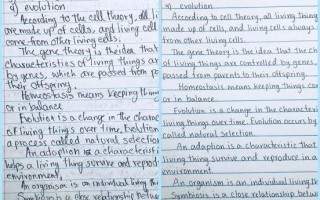 g) evolution
According to the cell theory, all li
are made up of cells, and living cell
come from other living cells.
The gene theory is the idea that
characteristics of living things ar
by genes, which are passed from po
their offspring.
Homeostasis means keeping thing
or in balance
Evolution is a change in the charac
of living things over time. Evolution
a process called natural selection
An adaption is a characteristi
helps a living thing survive and reprod
environment.
An organism is an individual living thi
Symbiosis is a close relationship betwe
evolution
According to cell theory, all living things
made up of cells, and living cells always
from other living cells.
The gene theory is the idea that the ch
of living things are controlled by genes,
passed from parents to their offspring.
Homeostasis means keeping things con
or in balance.
Evolution is a change in the characteri
living things over time. Evolution occurs by
called natural selection.
An adaption is a characteristic that
living thing survive and reproduce in a
environment.
An organism is an individual living th
Symbiosis is a close relationship betwe